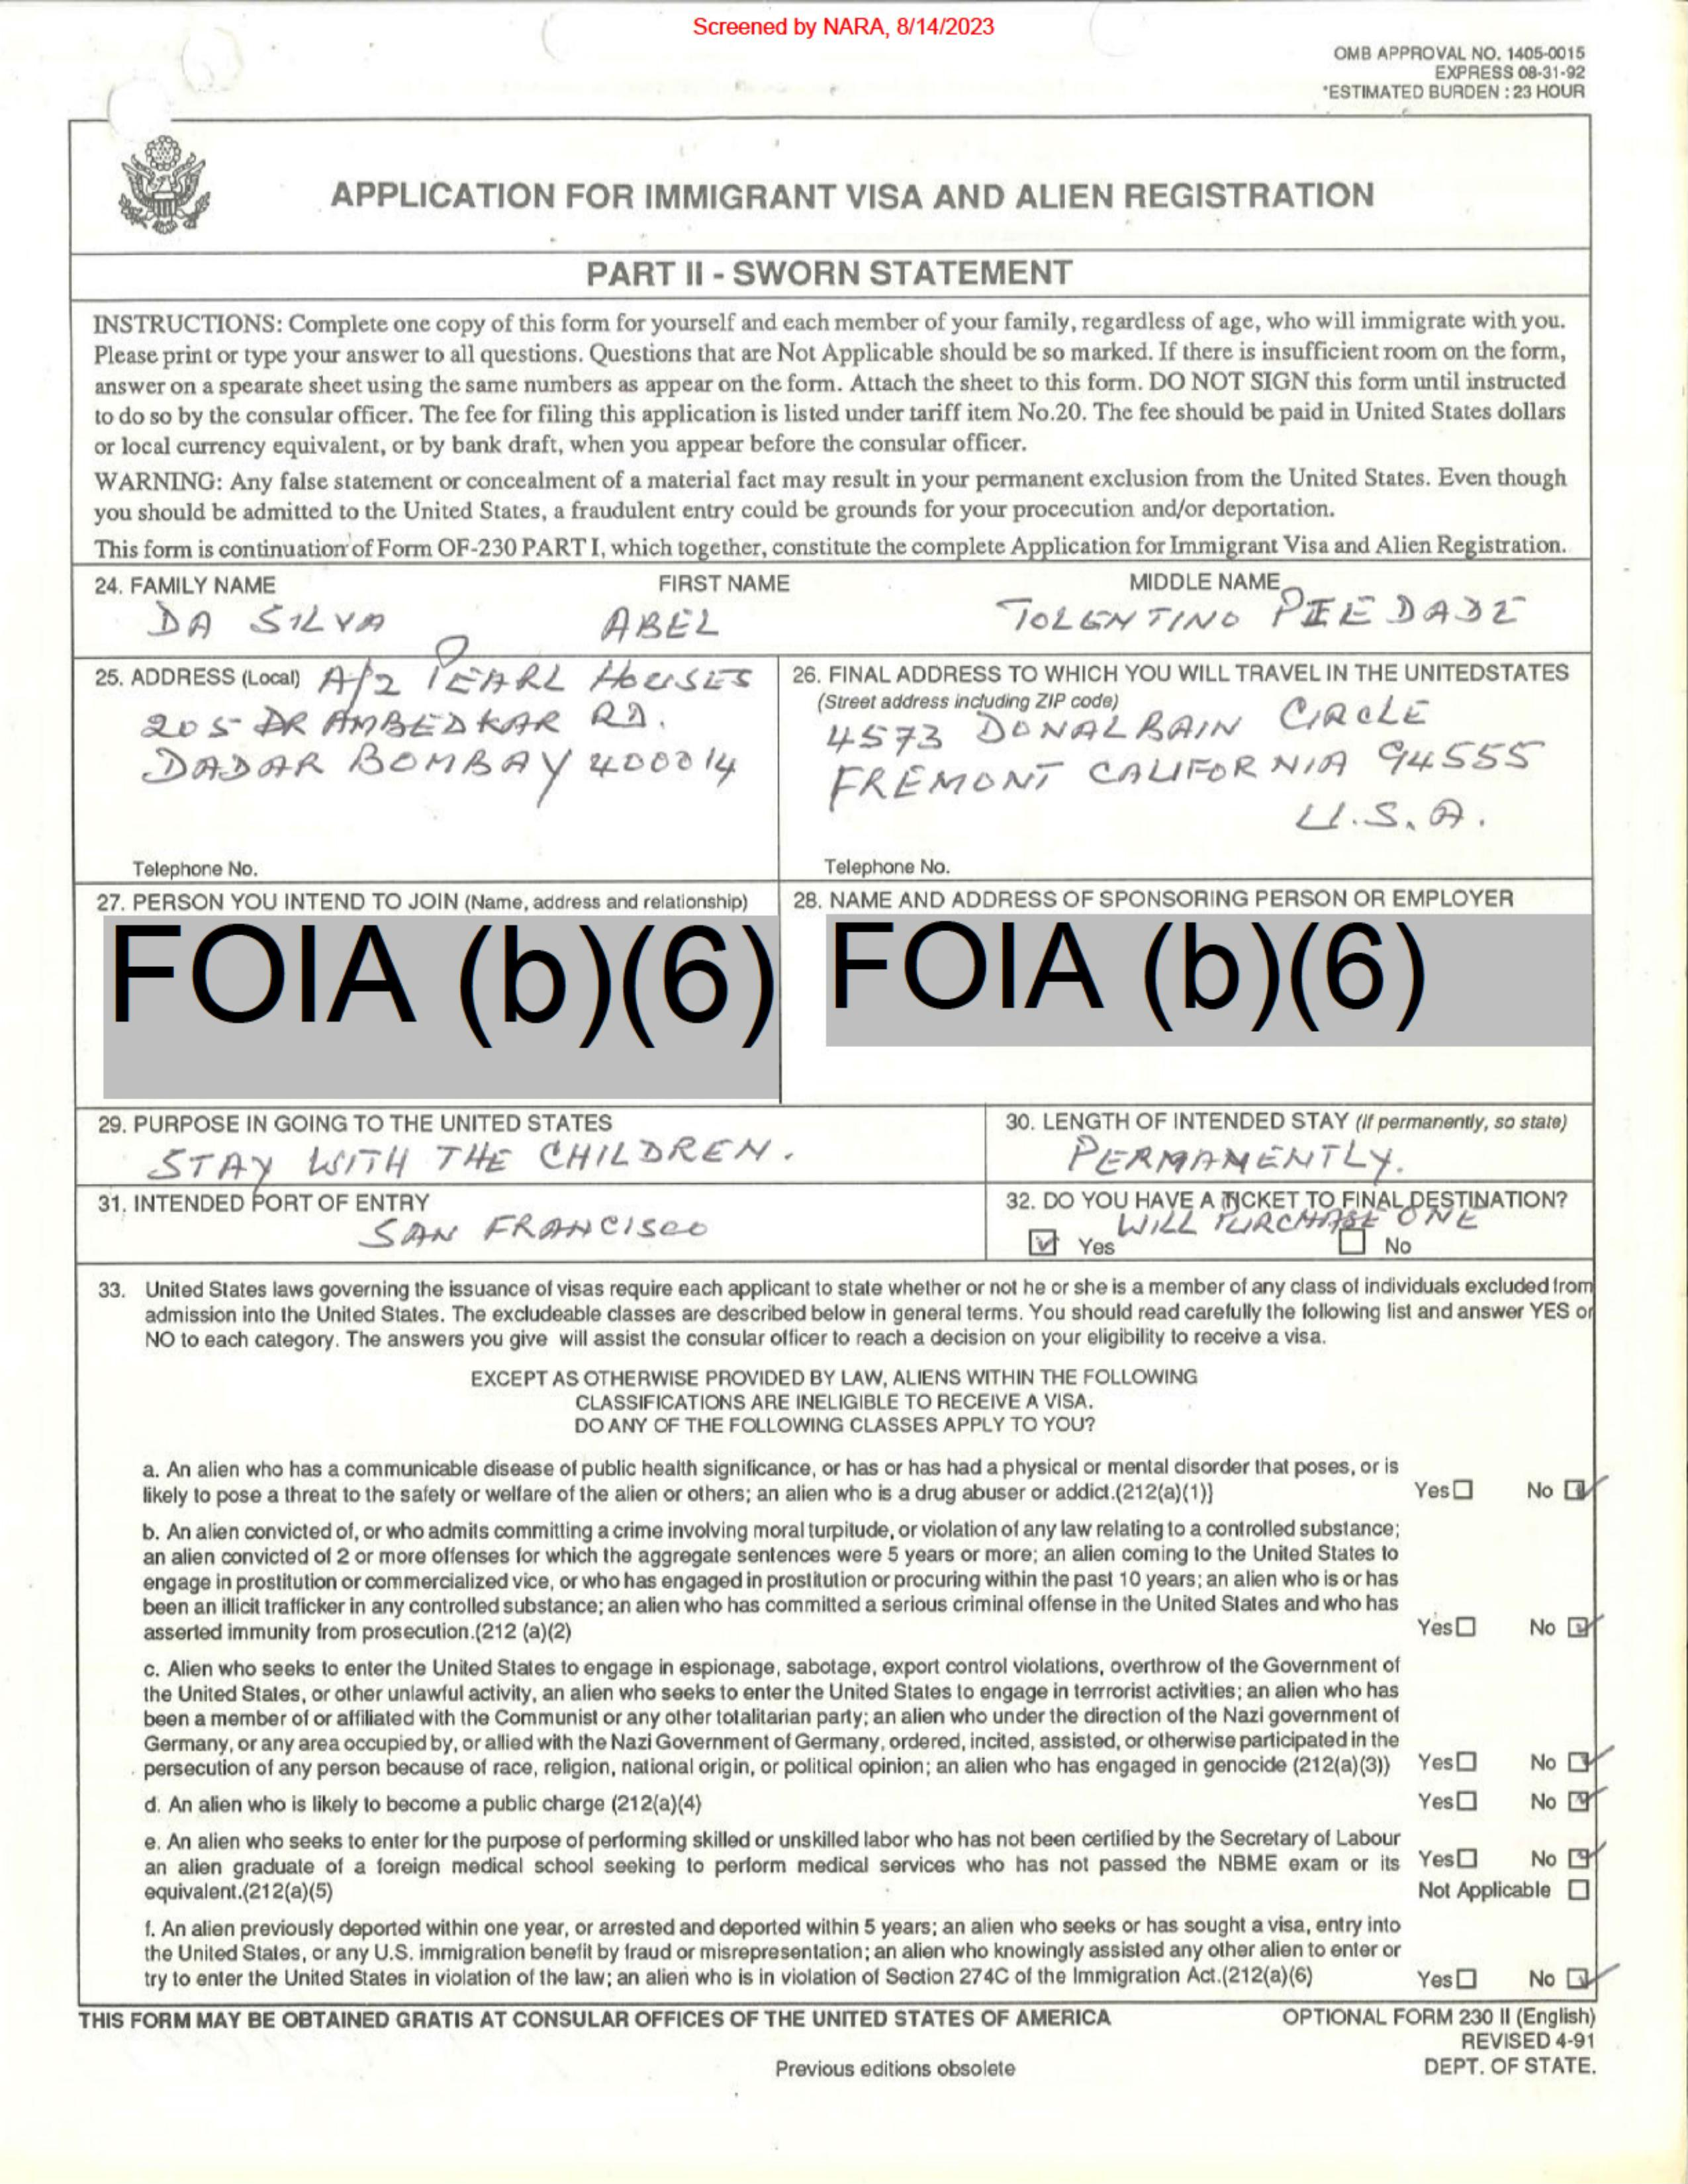 Screened by NARA, 8/14/2023
OMB APPROVAL NO. 1405-0015
EXPRESS 08-31-92
*ESTIMATED BURDEN : 23 HOUR
APPLICATION FOR IMMIGRANT VISA AND ALIEN REGISTRATION
PART II - SWORN STATEMENT
INSTRUCTIONS: Complete one copy of this form for yourself and each member of your family, regardless of age, who will immigrate with you.
Please print or type your answer to all questions. Questions that are Not Applicable should be so marked. If there is insufficient room on the form,
answer on a spearate sheet using the same numbers as appear on the form. Attach the sheet to this form. DO NOT SIGN this form until instructed
to do so by the consular officer. The fee for filing this application is listed under tariff item No.20. The fee should be paid in United States dollars
or local currency equivalent, or by bank draft, when you appear before the consular officer.
WARNING: Any false statement or concealment of a material fact may result in your permanent exclusion from the United States. Even though
you should be admitted to the United States, a fraudulent entry could be grounds for your procecution and/or deportation.
This form is continuation of Form OF-230 PART I, which together, constitute the complete Application for Immigrant Visa and Alien Registration.
24. FAMILY NAME FIRST NAME MIDDLE NAME
DA SILVA ABEL TOLENTINO PIEDADE
25. ADDRESS (Local) A/2 PEARL HOUSES
205 DR AMBEDKAR RD.
DADAR BOMBAY 400014
Telephone No.
26. FINAL ADDRESS TO WHICH YOU WILL TRAVEL IN THE UNITEDSTATES
(Street address including ZIP code)
4573 DONALBAIN CIRCLE
FREMONT CALIFORNIA 94555
U.S.A.
Telephone No.
27. PERSON YOU INTEND TO JOIN (Name, address and relationship)
FOIA (b)(6)
28. NAME AND ADDRESS OF SPONSORING PERSON OR EMPLOYER
FOIA (b)(6)
29. PURPOSE IN GOING TO THE UNITED STATES
STAY WITH THE CHILDREN.
30. LENGTH OF INTENDED STAY (If permanently, so state)
PERMANENTLY.
31. INTENDED PORT OF ENTRY
SAN FRANCISCO
32. DO YOU HAVE A TICKET TO FINAL DESTINATION?
WILL PURCHASE ONE
Yes No
33. United States laws governing the issuance of visas require each applicant to state whether or not he or she is a member of any class of individuals excluded from
admission into the United States. The excludeable classes are described below in general terms. You should read carefully the following list and answer YES or
NO to each category. The answers you give will assist the consular officer to reach a decision on your eligibility to receive a visa.
EXCEPT AS OTHERWISE PROVIDED BY LAW, ALIENS WITHIN THE FOLLOWING
CLASSIFICATIONS ARE INELIGIBLE TO RECEIVE A VISA.
DO ANY OF THE FOLLOWING CLASSES APPLY TO YOU?
a. An alien who has a communicable disease of public health significance, or has or has had a physical or mental disorder that poses, or is
likely to pose a threat to the safety or welfare of the alien or others; an alien who is a drug abuser or addict.(212(a)(1)} Yes No
b. An alien convicted of, or who admits committing a crime involving moral turpitude, or violation of any law relating to a controlled substance;
an alien convicted of 2 or more offenses for which the aggregate sentences were 5 years or more; an alien coming to the United States to
engage in prostitution or commercialized vice, or who has engaged in prostitution or procuring within the past 10 years; an alien who is or has
been an illicit trafficker in any controlled substance; an alien who has committed a serious criminal offense in the United States and who has
asserted immunity from prosecution.(212 (a)(2) Yes No
c. Alien who seeks to enter the United States to engage in espionage, sabotage, export control violations, overthrow of the Government of
the United States, or other unlawful activity, an alien who seeks to enter the United States to engage in terrrorist activities; an alien who has
been a member of or affiliated with the Communist or any other totalitarian party; an alien who under the direction of the Nazi government of
Germany, or any area occupied by, or allied with the Nazi Government of Germany, ordered, incited, assisted, or otherwise participated in the
persecution of any person because of race, religion, national origin, or political opinion; an alien who has engaged in genocide (212(a)(3)) Yes No
d. An alien who is likely to become a public charge (212(a)(4) Yes No
e. An alien who seeks to enter for the purpose of performing skilled or unskilled labor who has not been certified by the Secretary of Labour
an alien graduate of a foreign medical school seeking to perform medical services who has not passed the NBME exam or its Yes No
equivalent.(212(a)(5) Not Applicable
f. An alien previously deported within one year, or arrested and deported within 5 years; an alien who seeks or has sought a visa, entry into
the United States, or any U.S. immigration benefit by fraud or misrepresentation; an alien who knowingly assisted any other alien to enter or
try to enter the United States in violation of the law; an alien who is in violation of Section 274C of the Immigration Act.(212(a)(6) Yes No
THIS FORM MAY BE OBTAINED GRATIS AT CONSULAR OFFICES OF THE UNITED STATES OF AMERICA OPTIONAL FORM 230 II (English)
REVISED 4-91
Previous editions obsolete DEPT. OF STATE.